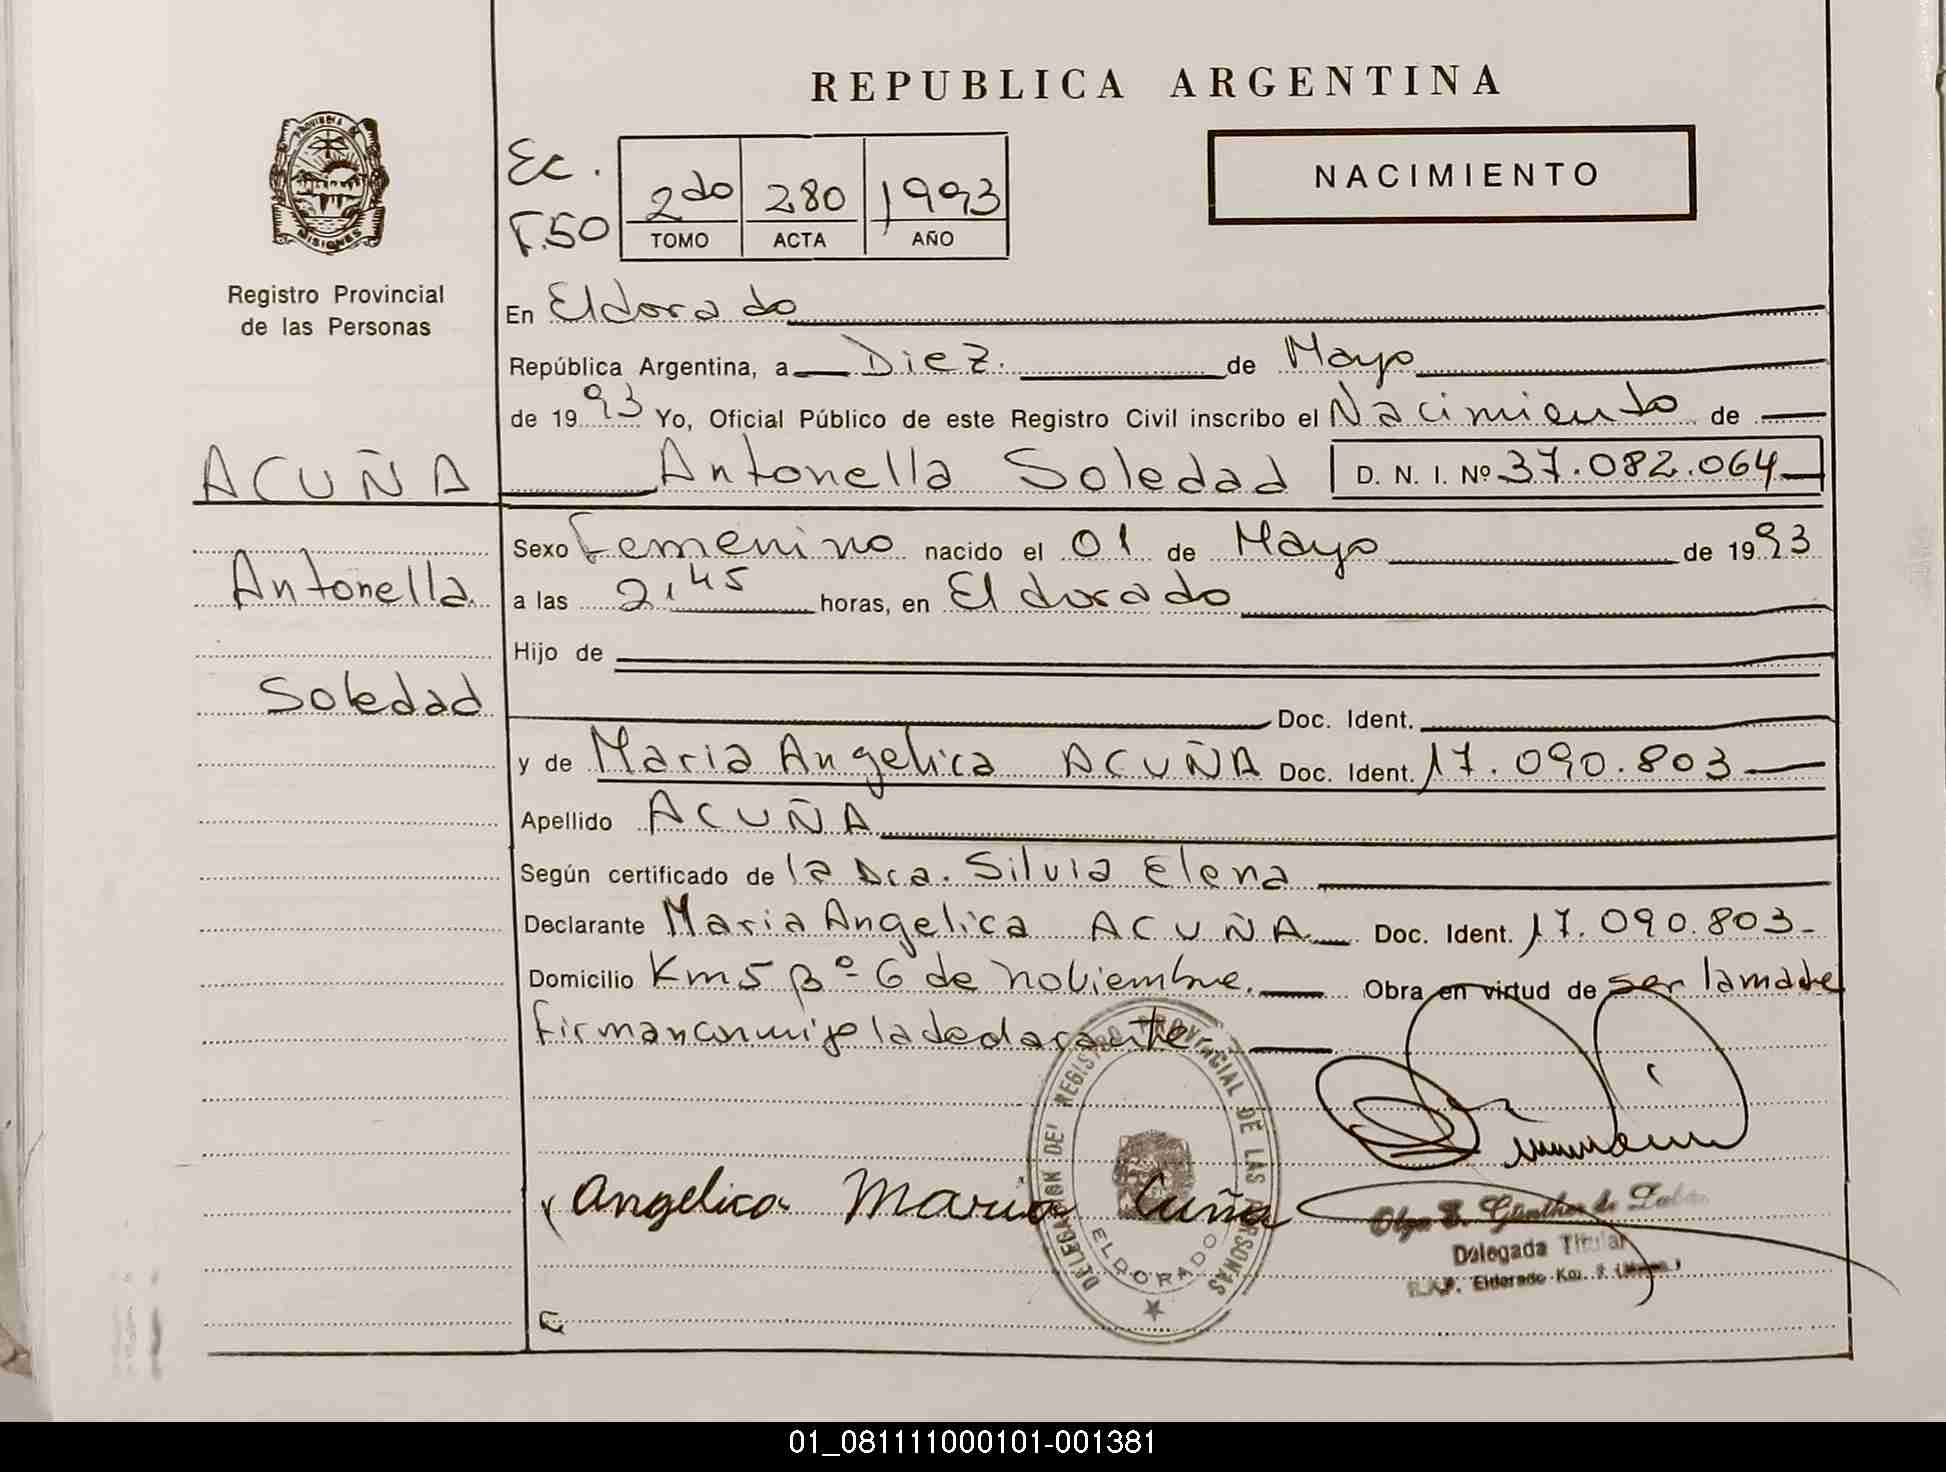 REPUBLICA ARGENTINA
PROVINCIA DE
MISIONES
Registro Provincial
de las Personas
Ec.
F.50
2do 280 1993
TOMO ACTA AÑO
NACIMIENTO
En Eldorado
República Argentina, a Diez. de Mayo
de 1993 Yo, Oficial Público de este Registro Civil inscribo el Nacimiento de
ACUÑA
Antonella Soledad D. N. I. Nº 37.082.064
Sexo Femenino nacido el 01 de Mayo de 1993
Antonella
a las 2,45 horas, en Eldorado
Hijo de
Soledad
Doc. Ident.
y de Maria Angelica ACUÑA Doc. Ident. 17.090.803
Apellido ACUÑA
Según certificado de la Dra. Silvia Elena
Declarante Maria Angelica ACUÑA Doc. Ident. 17.090.803-
Domicilio Km5 Bº 6 de noviembre. Obra en virtud de ser la madre
firman conmigo la declarante.
DELEGACION DEL REGISTRO PROVINCIAL DE LAS PERSONAS
ELDORADO
Angelica Maria Cuña
Olga E. Günther de
Delegada Titular
Eldorado Km.
01_081111000101-001381